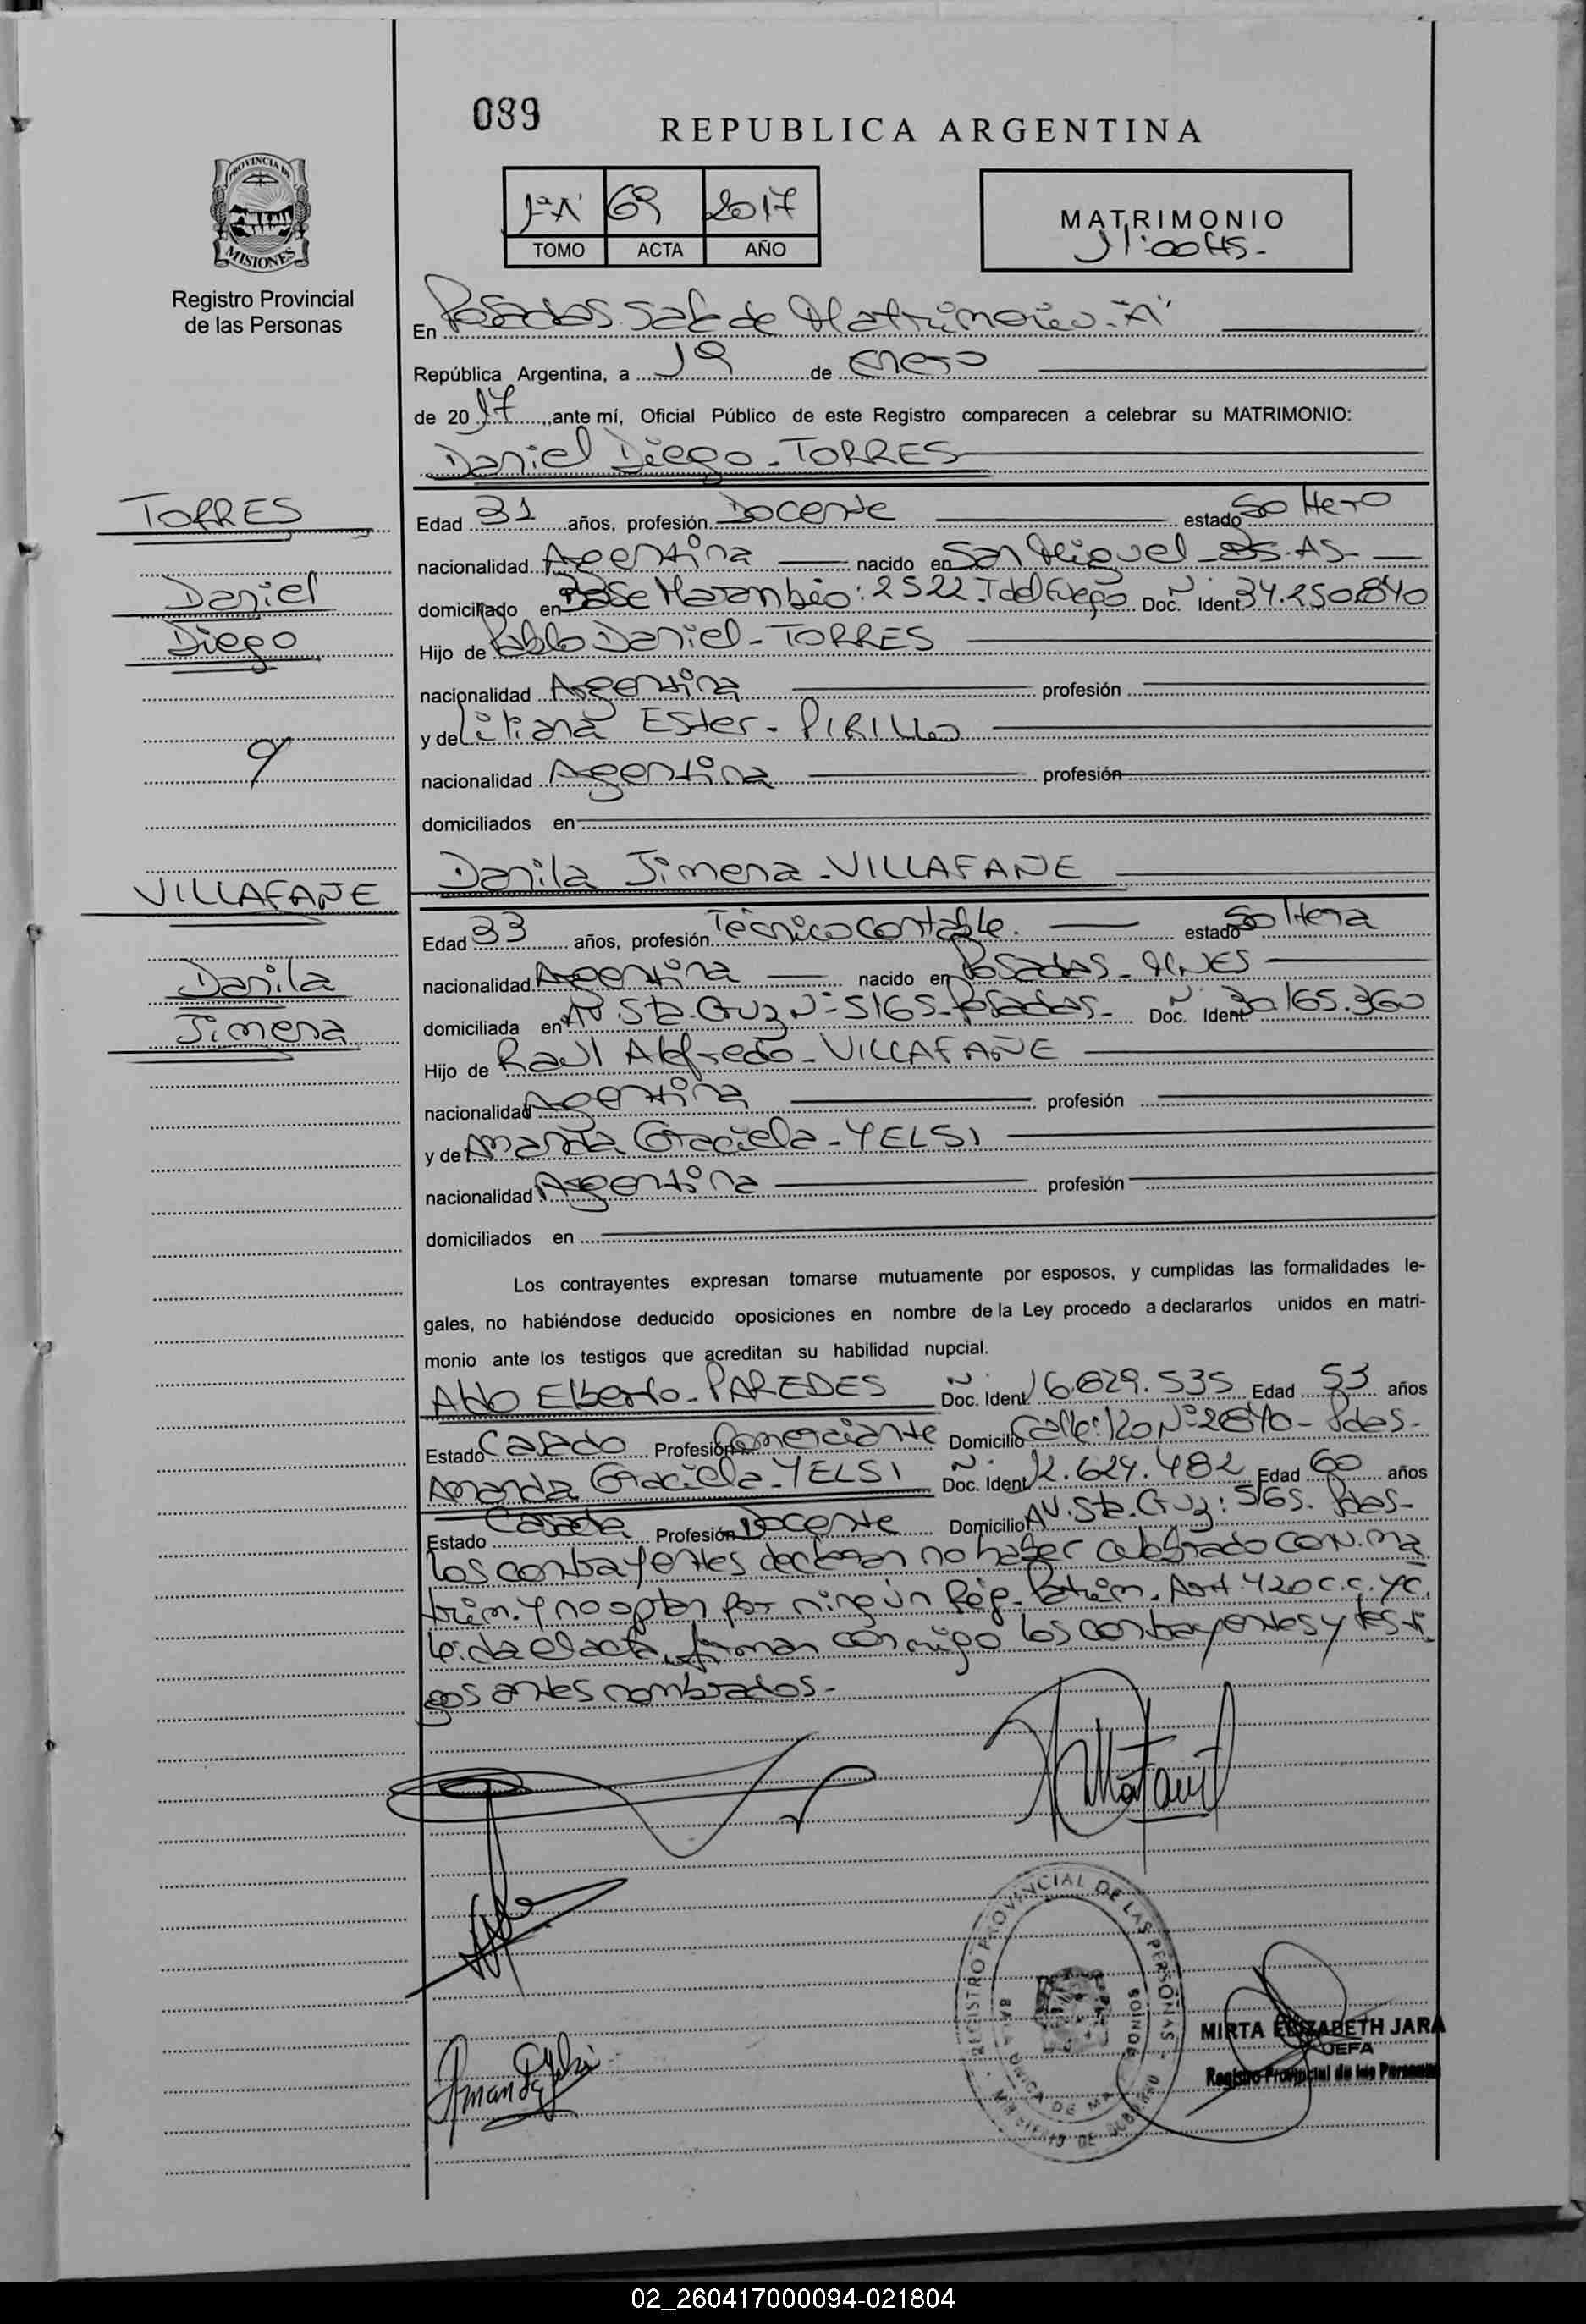 089
REPUBLICA ARGENTINA
PROVINCIA DE
MISIONES
Registro Provincial
de las Personas
1º"A" 69 2017
TOMO ACTA AÑO
MATRIMONIO
11:00HS-
En Posadas. Sala de Matrimonios-"A"
República Argentina, a 19 de Enero
de 2017, ante mí, Oficial Público de este Registro comparecen a celebrar su MATRIMONIO:
Daniel Diego - TORRES
TORRES
Daniel
Diego
Edad 31 años, profesión Docente estado Soltero
nacionalidad Argentina nacido en San Miguel - BS. AS-
domiciliado en Base Marambio: 2522. T del Fuego Doc. Ident 34.250.840
Hijo de Pablo Daniel - TORRES
nacionalidad Argentina profesión
y de Liliana Ester - PIRILLo
nacionalidad Argentina profesión
domiciliados en
y
VILLAFAÑE
Danila
Jimena
Danila Jimena - VILLAFAÑE
Edad 33 años, profesión Técnico contable. estado Soltera
nacionalidad Argentina nacido en Posadas - MNES
domiciliada en AV. Sta. Cruz Nº 5165 - Posadas - Doc. Ident. 30.165.360
Hijo de Raúl Alfredo - VILLAFAÑE
nacionalidad Argentina profesión
y de Amanda Graciela - YELSI
nacionalidad Argentina profesión
domiciliados en
Los contrayentes expresan tomarse mutuamente por esposos, y cumplidas las formalidades le-
gales, no habiéndose deducido oposiciones en nombre de la Ley procedo a declararlos unidos en matri-
monio ante los testigos que acreditan su habilidad nupcial.
Aldo Elberto - PAREDES Doc. Ident. 16.829.535 Edad 53 años
Estado Casado Profesión Comerciante Domicilio Calle: 120 Nº 2840 - Pdas -
Amanda Graciela - YELSI Doc. Ident. 12.624.482 Edad 60 años
Estado Casada Profesión Docente Domicilio AV. Sta. Cruz: 5165. Pdas-
Los contrayentes declaran no haber celebrado CON. ma
trim. y no optan por ningún Rég. Patrim. Art. 420 c.c. y c.
leída el acta, firman conmigo los contrayentes y testi
gos antes nombrados-
Amanda Yelsi
REGISTRO PROVINCIAL DE LAS PERSONAS
MINISTERIO DE GOBIERNO
MIRTA ELIZABETH JARA
JEFA
Registro Provincial de las Personas
02_260417000094-021804